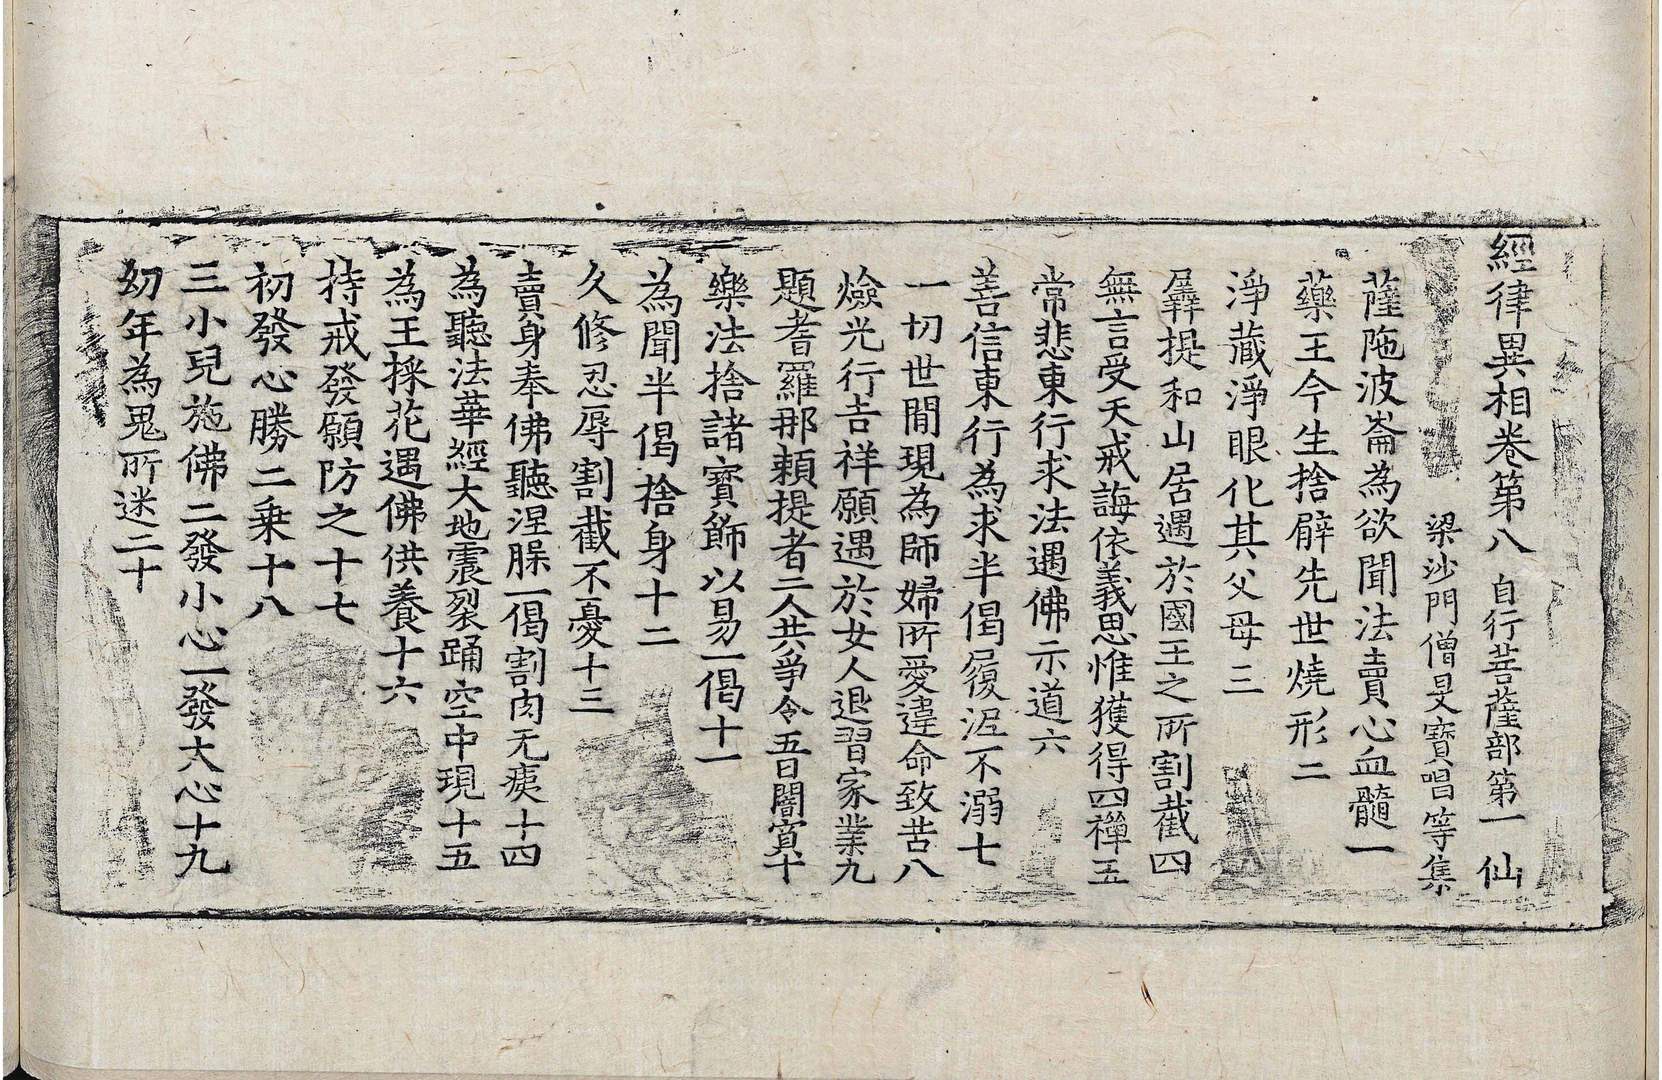 經律異相卷第八 自行菩薩部第一 仙
梁沙門僧旻寶唱等集
薩陁波崙為欲聞法賣心血髓一
藥王今生捨臂先世燒形二
淨藏淨眼化其父母三
羼提和山居遇於國王之所割截四
無言受天戒誨依義思惟獲得四禪五
常悲東行求法遇佛示道六
善信東行為求半偈履泥不溺七
一切世閒現為師婦所愛違命致苦八
燄光行吉祥願遇於女人退習家業九
題耆羅那賴提耆二人共爭令五日闇冥十
樂法捨諸寶飾以易一偈十一
為聞半偈捨身十二
久修忍辱割截不憂十三
賣身奉佛聽涅槃一偈割肉无痍十四
為聽法華經大地震裂踊空中現十五
為王採花遇佛供養十六
持戒發願防之十七
初發心勝二乗十八
三小兒施佛二發小心一發大心十九
幼年為鬼所迷二十